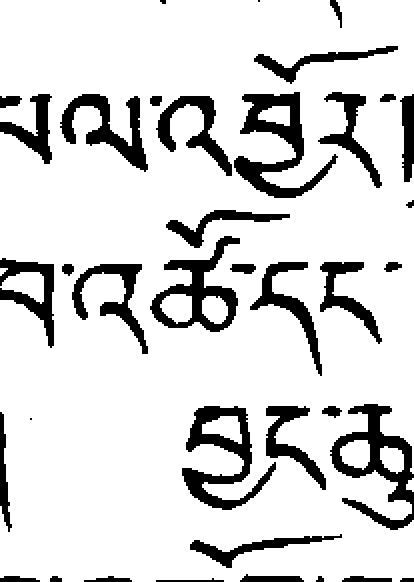 པལ་འབྱོར་།
བ་འཚོ་དང་
། བྱང་ཆུ